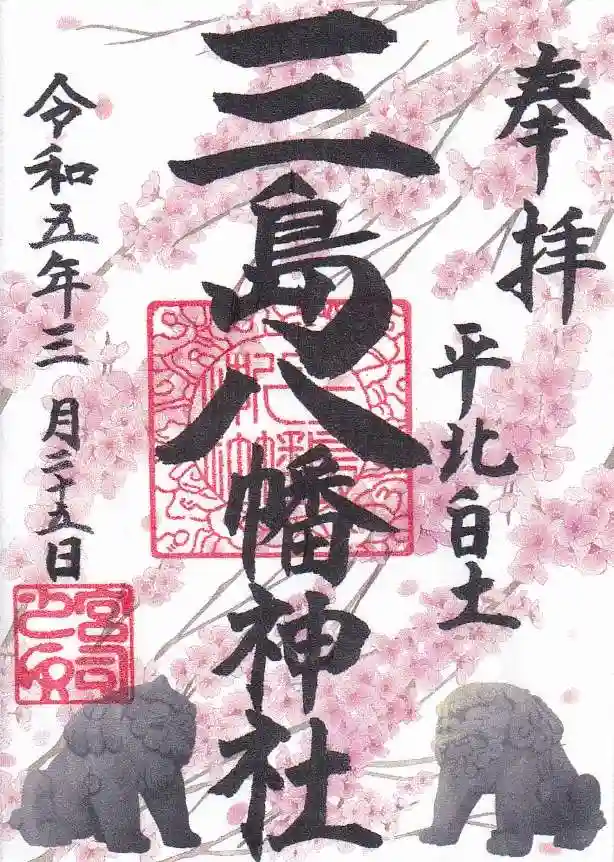 奉拝
平北白土
三島八幡神社
令和五年三月二十五日
宮司之印